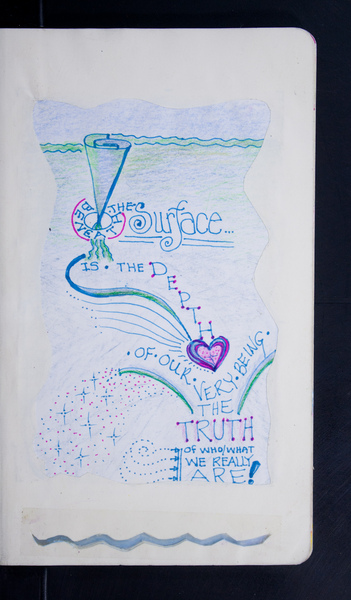 BENEATH THE Surface...
IS • THE DEPTH
• OF • OUR • VERY • BEING •
THE
TRUTH
OF WHO/WHAT
WE REALLY
ARE!